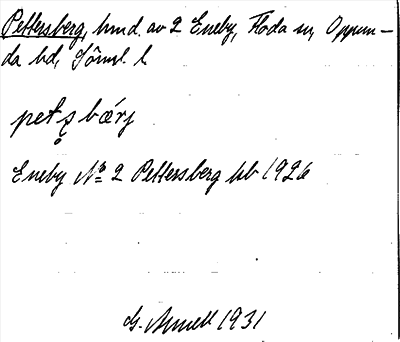 Pettersberg, hmd. av 2 Eneby, Floda sn, Oppun-
da hd, Söml. l
petʂbærj
Eneby No 2 Pettersberg kb 1926
G. 1931